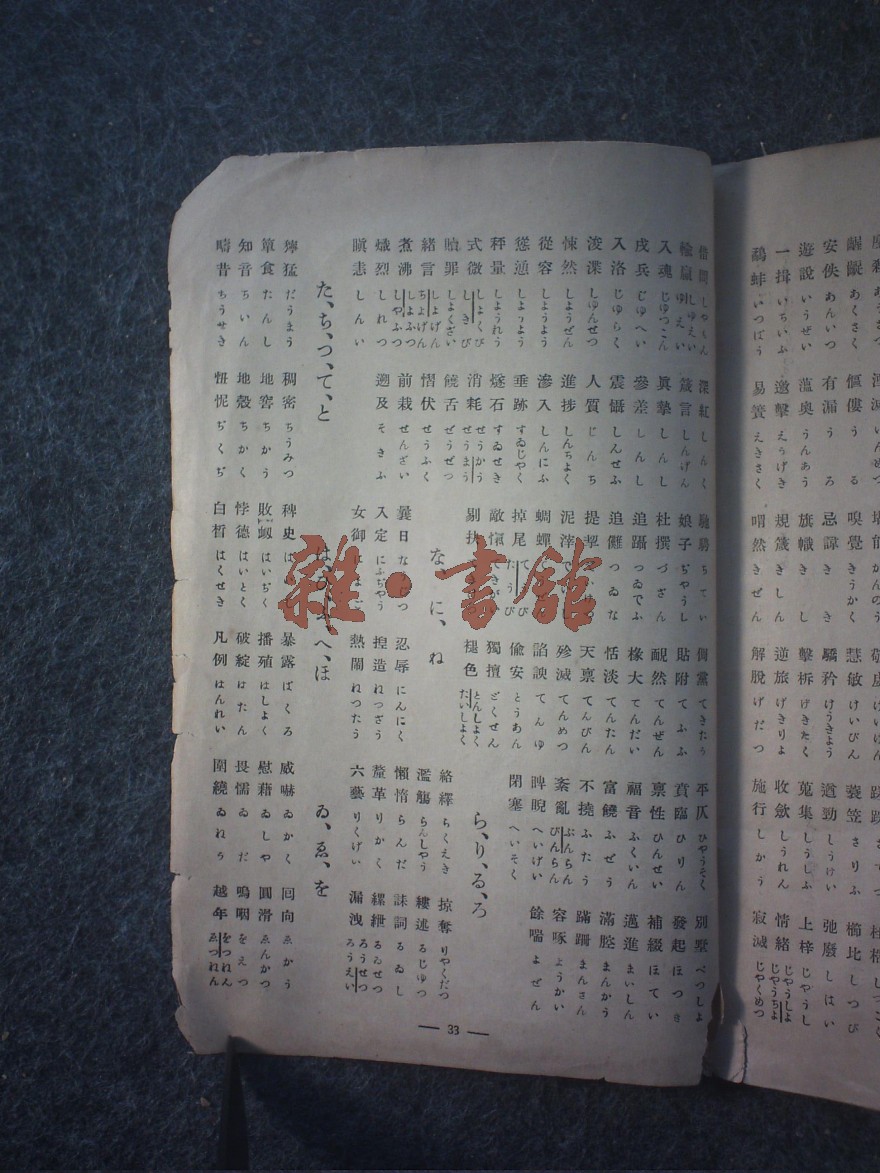 齷齪 あくさく 傴僂 うろ 嗅覺 きうかく 慧敏 けいびん 蓑笠 さりふ 櫛比 しつぴ
安佚 あんいつ 有漏 うろ 忌諱 きき 驕矜 けうきよう 遒勁 しうけい 弛廢 しはい
遊說 いうぜい 薀奧 うんあう 旗幟 きし 擊柝 げきたく 蒐集 しうしふ 上梓 じやうし
一揖 いちいふ 邀擊 えうげき 規箴 きしん 逆旅 げきりよ 收斂 しうれん 情緖 じやうしよ じやうちよ
鷸蚌 いつぼう 易簀 えきさく 喟然 きぜん 解脫 げだつ 施行 しかう 寂滅 じやくめつ
しやくん 深紅 しんく 馳騁 ちてい 倜黨 てきたう 平仄 ひやうそく 別墅 べつしよ
輸贏 しゆえい ゆえい 箴言 しんげん 娘子 ぢやうし 貼附 てふふ 賁臨 ひりん 發起 ほつき
入魂 じゆつこん 眞摯 しんし 杜撰 づざん 靦然 てんぜん 禀性 ひんせい 補綴 ほてい
戍兵 じゆへい 參差 しんし 追躡 つゐでふ 椽大 てんだい 福音 ふくいん 邁進 まいしん
入洛 じゆらく 震懾 しんせふ 追儺 つゐな 恬淡 てんたん 富饒 ふぜう 滿腔 まんかう
浚渫 しゆんせつ 人質 じんち 提挈 天禀 てんぴん 不撓 ふたう 蹣跚 まんさん
悚然 しようぜん 進捗 しんちよく 泥滓 殄滅 てんめつ 紊亂 ぶんらん びんらん 容啄 ようかい
從容 しようよう 滲入 しんにふ 蜩蟬 諂諛 てんゆ 睥睨 へいげい 餘喘 よぜん
慫慂 しようよう 垂跡 すゐじやく 掉尾 てうび たうび 偸安 とうあん 閉塞 へいそく
秤量 しようりう 燧石 すゐせき 敵愾 獨擅 どくせん
式微 しよくび しきび 消耗 せうかう せうまう 剔抉 褪色 とんしよく たいしよく ら、り、る、ろ
贖罪 しよくざい 饒舌 ぜうぜつ
緖言 しよげん ちよげん 慴伏 せうふく な に、ね 絡繹 らくえき 掠奪 りやくだつ
煮沸 しよふつ しやふつ 前栽 せんざい 濫觴 らんしやう 縷述 るじゆつ
熾烈 しれつ 遡及 そきふ 曩日 忍辱 にんにく 懶惰 らんだ 誄詞 るゐし
瞋恚 しんい 入定 にふぢやう 揑造 ねつざう 釐革 りかく 縲紲 るゐせつ
女御 熱鬧 ねつたう 六藝 りくげい 漏洩 ろうせつ ろうえい
た、ち、つ、て、と へ、ほ ゐ、ゑ、を
獰猛 だうまう 稠密 ちうみつ 稗史 暴露 ばくろ 威嚇 ゐかく 囘向 ゑかう
簞食 たんし 地窖 ちかう 敗衂 はいぢく 播殖 はしよく 慰藉 ゐしや 圓滑 ゑんかつ
知音 ちいん 地殼 ちかく 悖德 はいとく 破綻 はたん 畏懦 ゐだ 嗚咽 をえつ
疇昔 ちうせき 忸怩 ぢくぢ 白皙 はくせき 凡例 はんれい 圍繞 ゐねう 越年 をつねん ゑつねん
— 33 —
雜・書館